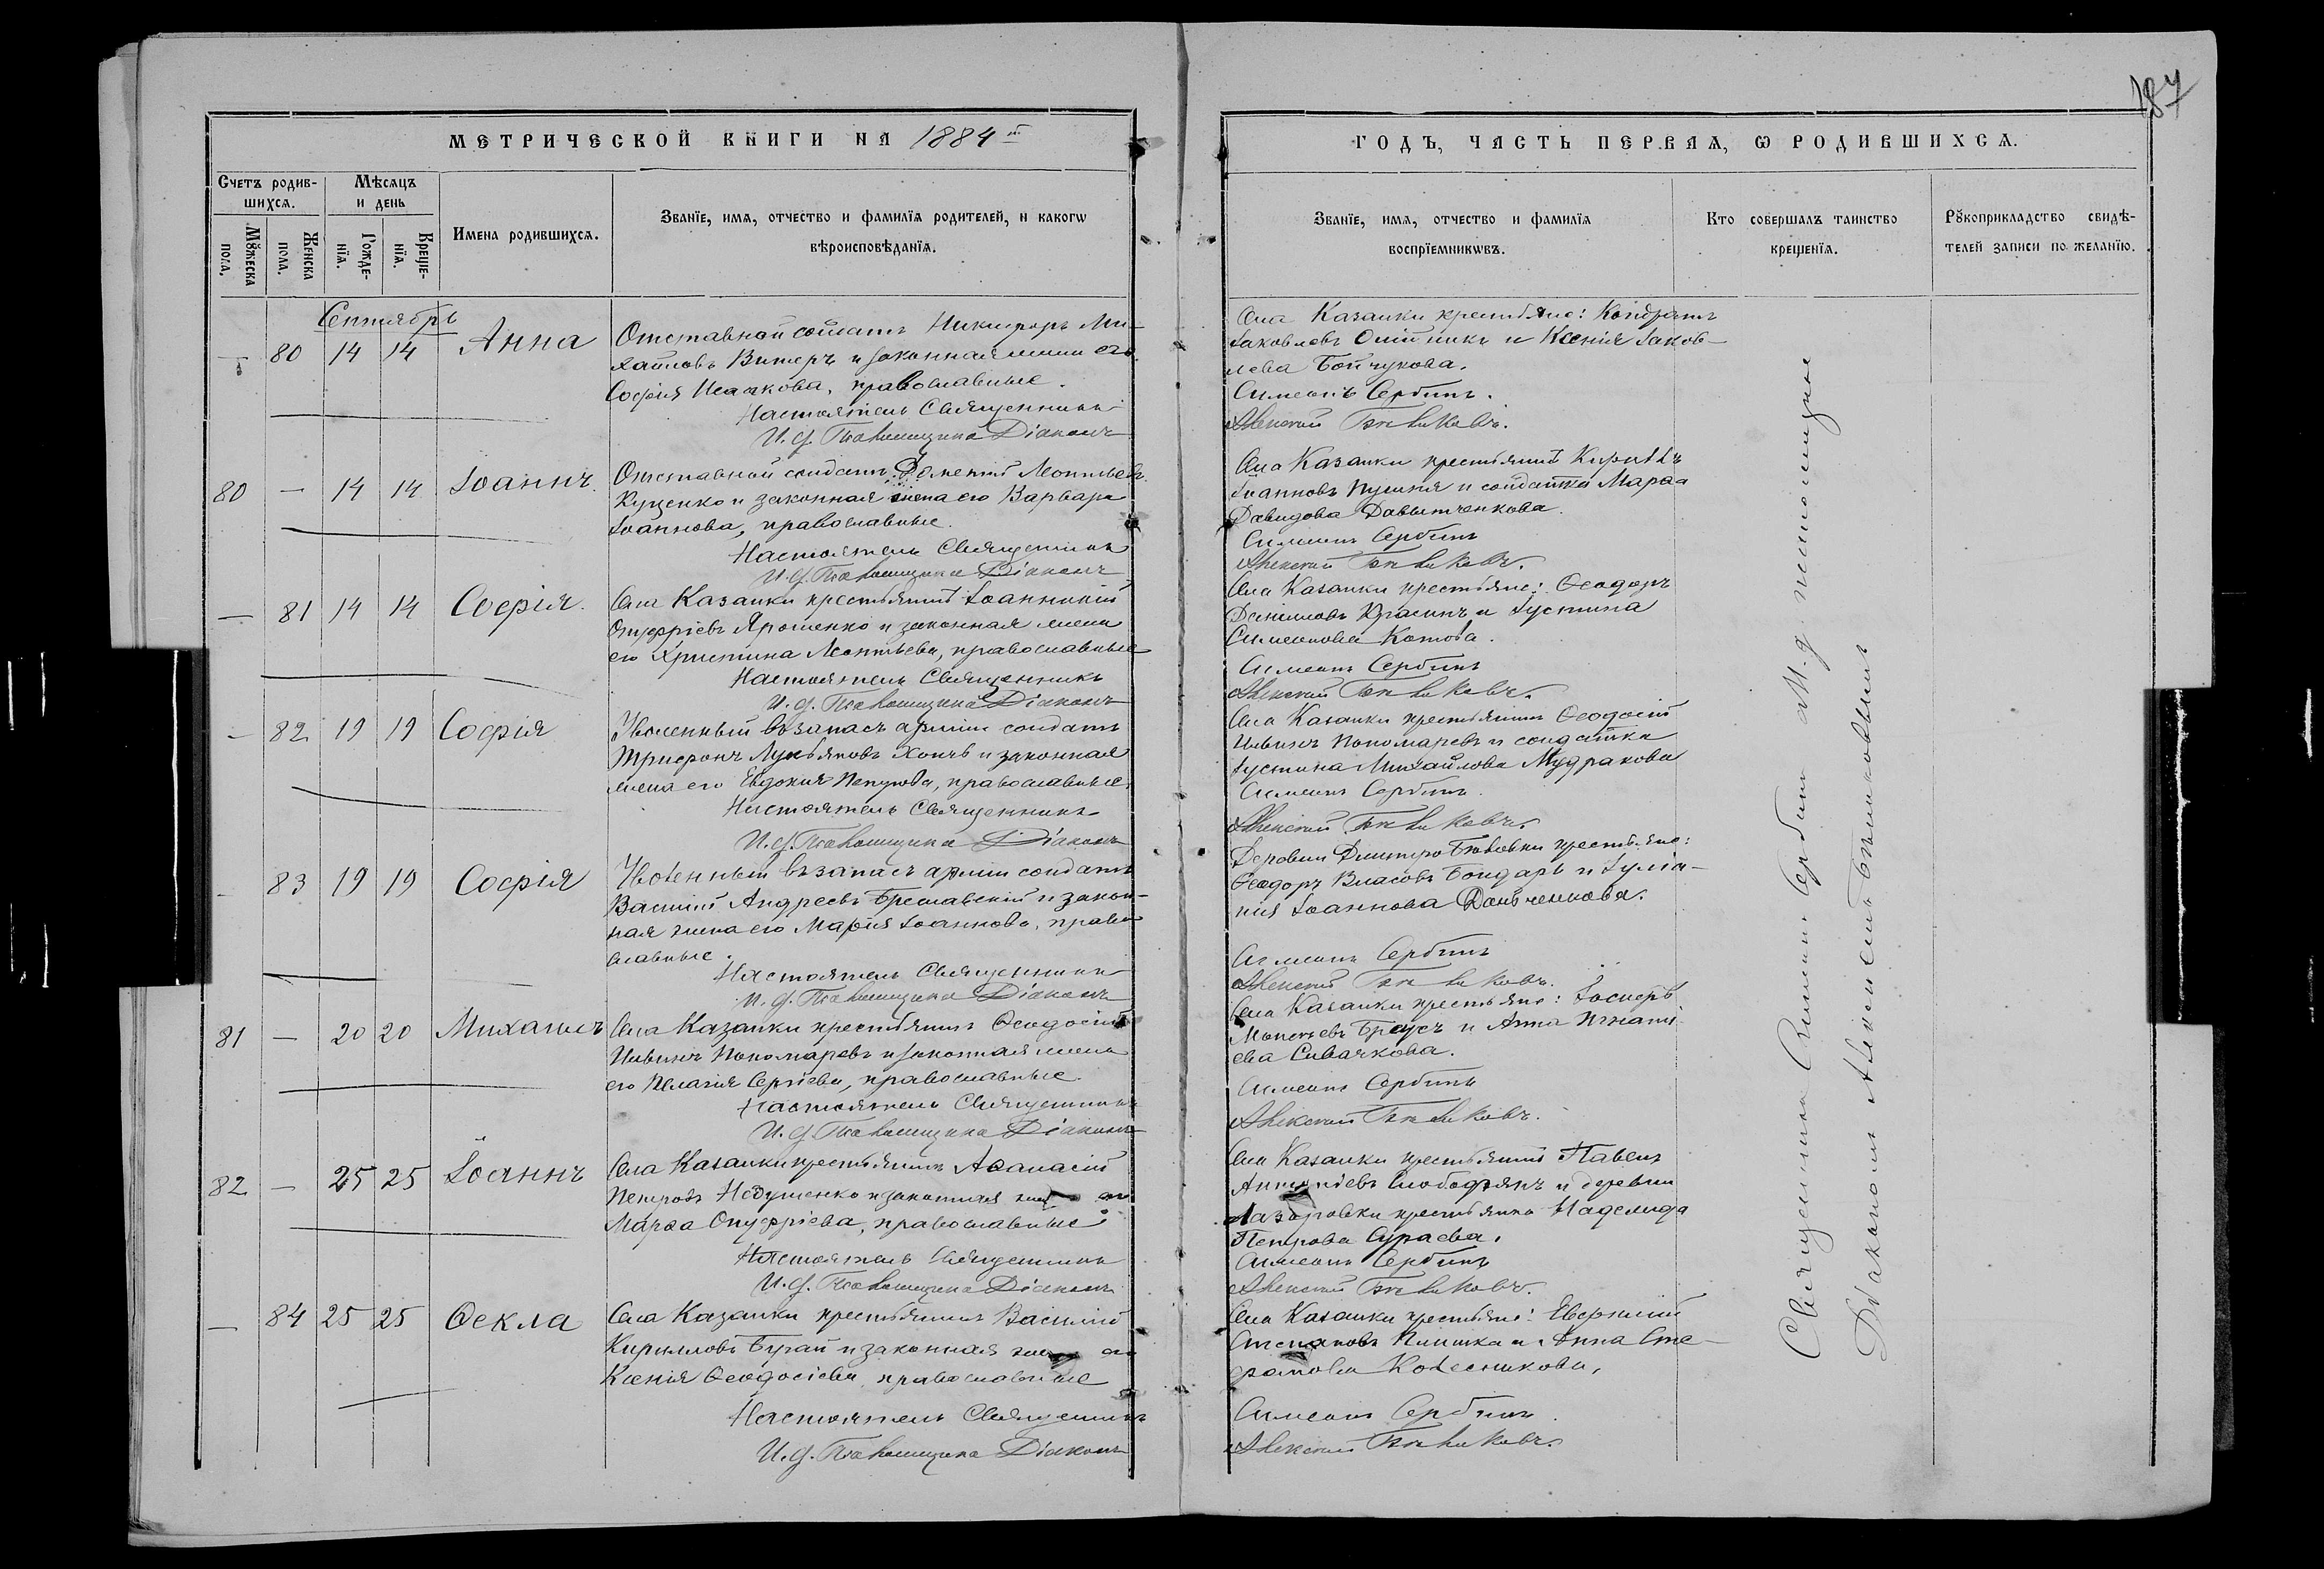 187
МЕТРИЧЕСКОЙ КНИГИ НА 1884 й
ГОДЪ, ЧАСТЬ ПЕРВАѦ, Ѡ РОДИВШИХСѦ.
Счетъ родив-
шихсѧ.
Мѣсѧцъ
и день
Мꙋжеска
пола.
Женска
пола.
Рожде-
нїѧ.
Креще-
нїѧ.
Имена родившихсѧ.
Званїе, имѧ, отчество и фамилїѧ родителей, и какогѡ
вѣроисповѣданїѧ.
Званїе, имѧ, отчество и фамилїѧ
воспрїемникѡвъ.
Кто совершалъ таинство
крещенїѧ.
Рꙋкоприкладство свидѣ-
телей записи по желанїю.
Сентябрь
— 80 14 14 Анна
Отставной солдатъ Никифоръ Ми-
хайловъ Витеръ и законная жена его
Софія Исаакова, православные.
Настоятель Священникъ
И. д. Псаломщика Діаконъ
Села Казанки крестьяне: Кондратъ
Іаковлевъ Олійникъ и Ксенія Іаков-
лева Бойчукова.
Симеонъ Сербинъ.
Алексій
80 — 14 14 Іоаннъ.
Отставной солдатъ Дометій Леонтьевъ
Куценко и законная жена его Варвара
Іоаннова, православные.
Настоятель Священникъ
И. д. Псаломщика Діаконъ
Села Казанки крестьянинъ Кириллъ
Іоанновъ и солдатка Марѳа
Давидова
Симеонъ Сербинъ
Алексій
— 81 14 14 Софія.
Села Казанки крестьянинъ Іоанникій
Онуфріевъ Ярошенко и законная жена
его Христина Леонтьева, православные
Настоятель Священникъ
И. д. Псаломщика Діаконъ
Села Казанки крестьяне: Ѳеодоръ
Даниловъ Красинъ и Іустина
Симеонова Котова.
Симеонъ Сербинъ
Алексій
— 82 19 19 Софія
Уволенный въ запасъ арміи солдатъ
Трифонъ Лукьяновъ и законная
жена его Евдокія Петрова, православные.
Настоятель Священникъ
И. д. Псаломщика Діаконъ
Села Казанки крестьянинъ Ѳеодосій
Ильинъ Пономаревъ и солдатка
Іустина Михайлова Мудракова
Симеонъ Сербинъ.
Алексій
— 83 19 19 Софія
Уволенный въ запасъ арміи солдатъ
Василій Андреевъ Бреславскій и закон-
ная жена его Марія Іоаннова, право-
славные.
Настоятель Священникъ
И. д. Псаломщика Діаконъ
Деревни крестьяне:
Ѳеодоръ Власовъ Бондарь и Іуліа-
нія Іоаннова
Симеонъ Сербинъ
Алексій
81 — 20 20 Михаилъ
Села Казанки крестьянинъ Ѳеодосій
Ильинъ Пономаревъ и законная жена
его Пелагія Сергіева, православные.
Настоятель Священникъ
И. д. Псаломщика Діаконъ
Села Казанки крестьяне: Іосифъ
Моисеевъ Браусъ и Анна Игнаті-
ева Сивачкова.
Симеонъ Сербинъ
Алексій
82 — 25 25 Іоаннъ
Села Казанки крестьянинъ Аѳанасій
Петровъ и законная жена его
Марѳа Онуфріева, православные.
Настоятель Священникъ
И. д. Псаломщика Діаконъ
Села Казанки крестьянинъ Павелъ
Слободянъ и деревни
Лазаровки крестьянка Надежда
Петрова Сураева.
Симеонъ Сербинъ
Алексій
— 84 25 25 Ѳекла
Села Казанки крестьянинъ Василій
Кирилловъ Бугай и законная жена его
Ксенія Ѳеодосіева, православные
Настоятель Священникъ
И. д. Псаломщика Діаконъ
Села Казанки крестьяне:
Степановъ и Анна Сте-
фанова Колесникова,
Симеонъ Сербинъ.
Алексій
Священникъ Симеонъ Сербинъ И. д псаломщика
Діакономъ Алексіемъ